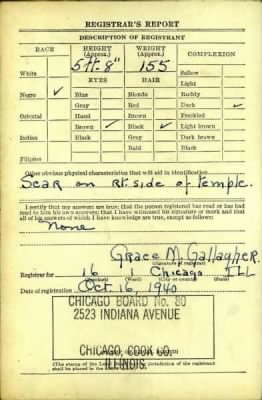 REGISTRAR'S REPORT
DESCRIPTION OF REGISTRANT
RACE HEIGHT (Approx.) WEIGHT (Approx.) COMPLEXION
5 ft. 8" 155
White EYES HAIR Sallow
Light
Negro ✓ Blue Blonde Ruddy
Gray Red Dark ✓
Oriental Hazel Brown Freckled
Brown ✓ Black ✓ Light brown
Indian Black Gray Dark brown
Bald Black
Filipino
Other obvious physical characteristics that will aid in identification
Scar on rt. side of temple.
I certify that my answers are true; that the person registered has read or has had
read to him his own answers; that I have witnessed his signature or mark and that
all of his answers of which I have knowledge are true, except as follows:
None
Grace M. Gallagher
(Signature of registrar)
Registrar for 16 1 Chicago Ill
(City or county) (State)
Date of registration Oct 16, 1940
CHICAGO BOARD No. 80
2523 INDIANA AVENUE
CHICAGO, COOK CO.
ILLINOIS.
(The stamp of the Local Board jurisdiction of the registrant
shall be placed in the